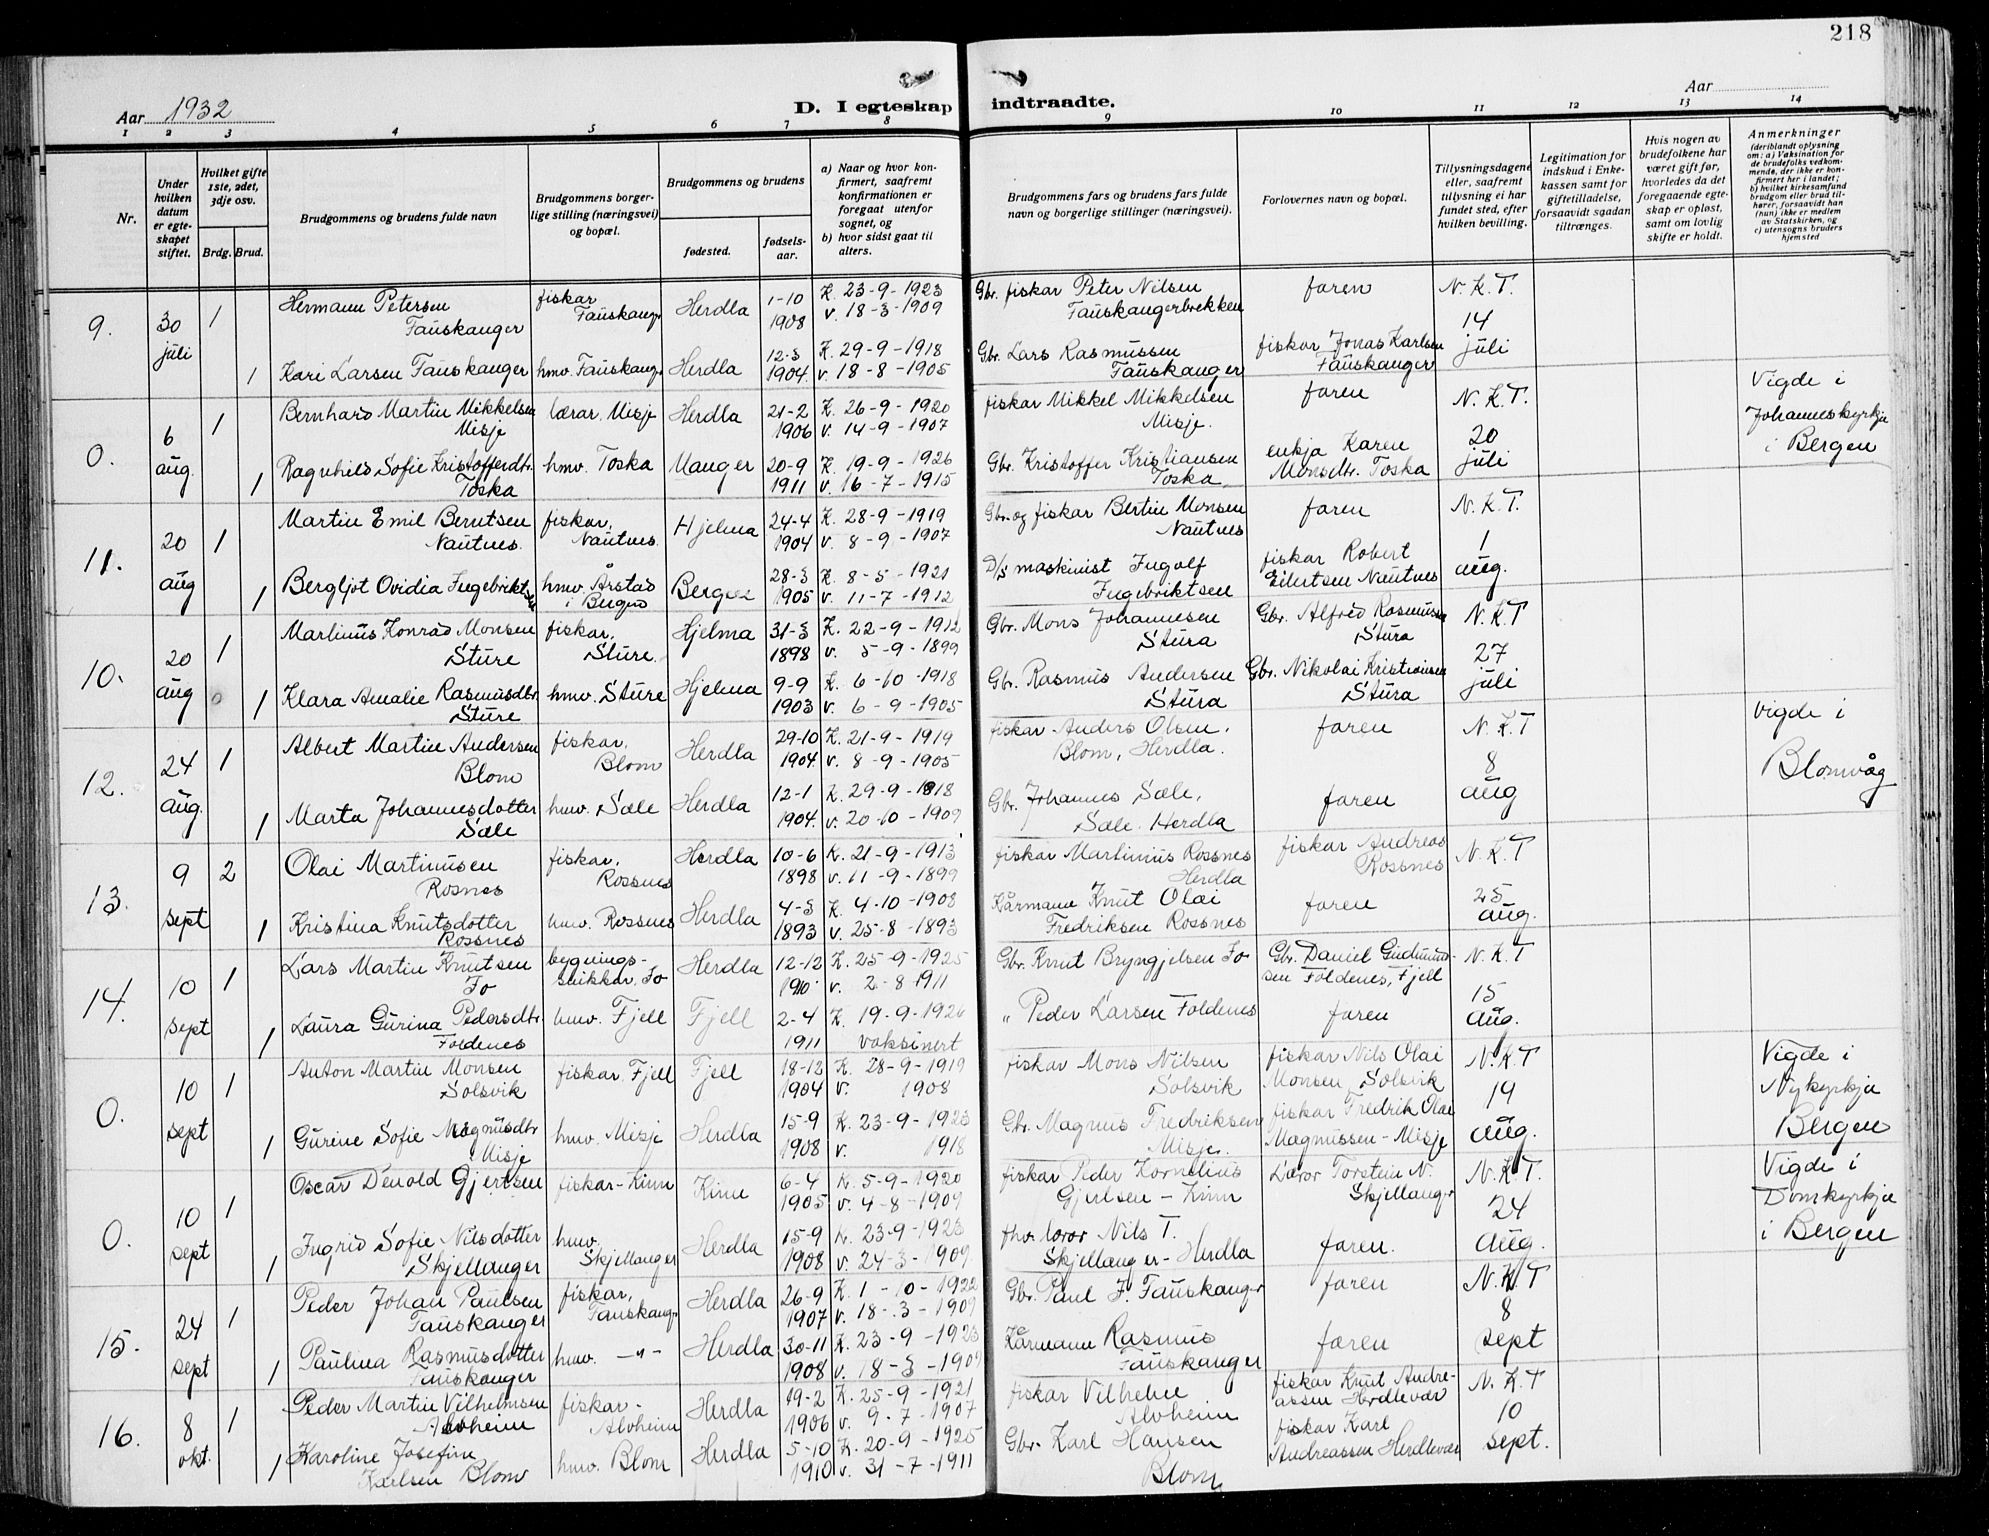 218
Aar 1932
D. I egteskap indtraadte.
Aar
1 2 3 4 5 6 7 8 9 10 11 12 13 14
Nr.
Under hvilken datum er egteskapet stiftet.
Hvilket gifte 1ste, 2det, 3dje osv.
Brdg. Brud.
Brudgommens og brudens fulde navn
Brudgommens borgerlige stilling (næringsvei) og bopæl.
Brudgommens og brudens
fødested.
fødselsaar.
a) Naar og hvor konfirmert, saafremt konfirmationen er foregaat utenfor sognet, og
b) hvor sidst gaat til alters.
Brudgommens fars og brudens fars fulde navn og borgerlige stillinger (næringsvei).
Forlovernes navn og bopæl.
Tillysningsdagene eller, saafremt tillysning ei har fundet sted, efter hvilken bevilling.
Legitimation for indskud i Enkekassen samt for giftetilladelse, forsaavidt saadan tiltrænges.
Hvis nogen av brudefolkene har været gift før, hvorledes da det foregaaende egteskap er opløst, samt om lovlig skifte er holdt.
Anmerkninger
(deriblandt oplysning om: a) Vaksination for de brudefolks vedkommende, der ikke er konfirmert her i landet; b) hvilket kirkesamfund brudgom eller brud tilhører, forsaavidt han (hun) ikke er medlem av Statskirken, og c) utensogns bruders hjemsted
9. 30 juli 1 Hermann Petersen Fauskanger fiskar Fauskanger Herdla 1-10 1908 K. 23-9-1923 v. 18-3-1909 Gbr. fiskar Peter Nilsen Fauskangerbrekken faren N.K.T. 14 juli
1 Kari Larsen Fauskanger hmv. Fauskang. Herdla 12-3 1904 K. 29-9-1918 v. 18-8-1905 Gbr. Lars Rasmussen Fauskanger fiskar Jonas Karlsen Fauskanger
0. 6 aug. 1 Bernhard Martin Mikkelsen Misje lærar. Misje Herdla 21-2 1906 K. 26-9-1920 v. 14-9-1907 fiskar Mikkel Mikkelsen Misje. faren N.K.T. 20 juli Vigde i Johanneskyrkja i Bergen
1 Ragnhild Sofie Kristofferdtr. Toska hmv. Toska Manger 20-9 1911 K. 19-9-1926 v. 16-7-1915 Gbr. Kristoffer Kristiansen Toska enkja Karen Monsdtr. Toska
11. 20 aug 1 Martin Emil Berntsen Nautnes. fiskar, Nautnes. Hjelma 24-4 1904 K. 28-9-1919 v. 8-9-1907 Gbr. og fiskar Bertin Monsen Nautnes faren N.K.T. 1 aug.
1 Bergljot Ovidia Ingebriktsen hmv. Årstad i Bergen Bergen 28-3 1905 K. 8-5-1921 v. 11-7-1912 D/s maskinist Ingolf Ingebriktsen fiskar Robert Eilertsen Nautnes
10. 20 aug 1 Martinus Konrad Monsen Sture fiskar, Sture. Hjelma 31-3 1898 K. 22-9-1912 v. 5-9-1899 Gbr. Mons Johannesen Stura Gbr. Alfred Rasmussen Stura N.K.T 27 juli
1 Klara Amalie Rasmusdtr. Sture hmv. Sture Hjelma 9-9 1903 K. 6-10-1918 v. 6-9-1905 Gbr. Rasmus Andersen Stura Gbr. Nikolai Kristiansen Stura
12. 24 aug. 1 Albert Martin Andersen Blom fiskar, Blom Herdla 29-10 1904 K. 21-9-1919 v. 8-9-1905 fiskar Anders Olsen, Blom, Herdla. faren N.K.T 8 aug Vigde i Blomvåg
1 Marta Johannesdotter Sæle hmv. Sæle Herdla 12-1 1904. K. 29-9-1918 v. 20-10-1909 Gbr. Johannes Sæle, Sæle. Herdla faren
13. 9 sept 2 Olai Martinusen Rosnes fiskar, Rossnes Herdla 10-6 1898 K. 21-9-1913 v. 11-9-1899 fiskar Martinius Rossnes Herdla fiskar Andreas Rossnes N.K.T 25 aug.
1 Kristina Knutsdotter Rossnes hmv. Rossnes Herdla 4-3 1893 K. 4-10-1908 v. 25-8-1893 Kårmann Knut Olai Fredriksen Rossnes faren
14. 10 sept 1 Lars Martin Knutsen Io bygnings-snikkar, Io Herdla 12-12 1910 K. 25-9-1925 v. 2-8-1911 Gbr. Knut Bryngjelsen Io Gbr. Daniel Gudmundsen Foldenes, Fjell N.K.T 15 aug.
1 Laura Gurina Pedersdtr. Foldenes hmv. Fjell Fjell 2-4 1911 K. 19-9-1926 vaksinert " Peder Larsen Foldenes faren
0. 10 sept 1 Anton Martin Monsen Solsvik fiskar, Fjell Fjell 18-12 1904 K. 28-9-1919 v. 1908 fiskar Mons Nilsen Solsvik fiskar Nils Olai Monsen, Solsvik N.K.T 19 aug. Vigde i Nykyrkja Bergen
1 Gurine Sofie Magnusdtr Misje hmv. Misje Herdla 15-9 1908 K. 23-9-1923 v. 1918 Gbr. Magnus Fredriksen Misje. fiskar Fredrik Olai Magnussen - Misje
0. 10 sept 1 Oscar Denold Gjertsen fiskar - Kinn Kinn 6-4 1905 K. 5-9-1920 v. 4-8-1909 fiskar Peder Kornelius Gjertsen - Kinn Lærar Torstein N. Skjellanger N.K.T. 24 aug. Vigde i Domkyrkja i Bergen
1 Ingrid Sofie Nilsdotter Skjellanger hmv. Skjellanger Herdla 15-9 1908 K. 23-9-1923 v. 24-3-1909 fhv. lærar Nils T. Skjellanger - Herdla faren.
15. 24 sept 1 Peder Johan Paulsen Fauskanger fiskar, Fauskang. Herdla 26-9 1907 K. 1-10-1922 v. 18-3-1909 Gbr. Paul J. Fauskanger faren N.K.T 8 sept
1 Paulina Rasmusdotter Fauskanger hmv. -"- Herdla 30-11 1908 K. 23-9-1923 v. 18-3-1909 Kårmann Rasmus Fauskanger faren
16. 8 okt. 1 Peder Martin Vilhelmsen Alvheim fiskar - Alvheim Herdla 19-2 1906 K. 25-9-1921 v. 9-7-1907 fiskar Vilhelm Alvheim fiskar Knut Andreassen Herdlevær N.K.T 10 sept.
1 Karoline Josefine Karlsen Blom hmv. Blom Herdla 5-10 1910 K. 20-9-1925 v. 31-7-1911 Gbr. Karl Hansen Blom fiskar Karl Andreassen Herdlevær